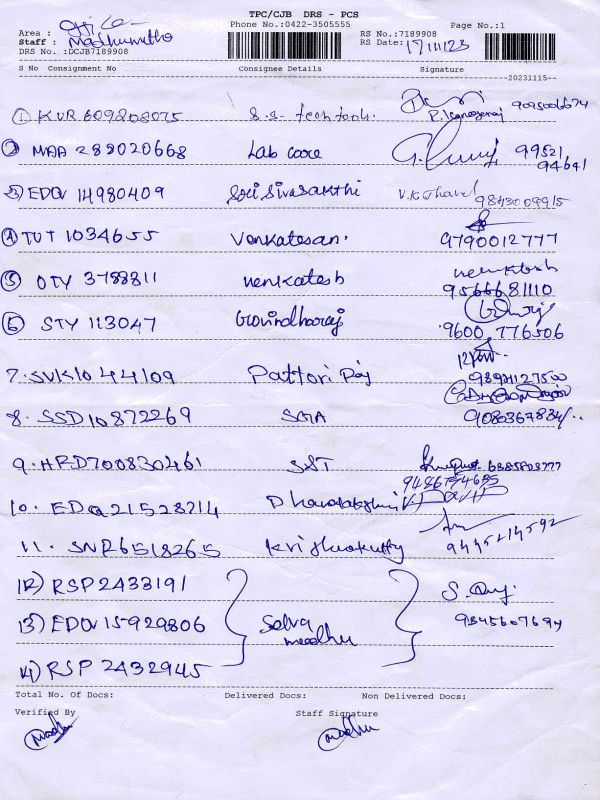 TPC/CJB DRS - PCS
Phone No.:0422-3505555
Page No.:1
Area : office
Staff : Madhumitha
DRS No. :DCJB7189908
RS No.:7189908
RS Date: 17/11/23
S No Consignment No Consignee Details Signature
20231115
1 KUR 609208075 S.S. tech tools. 9095006674
2 MAA 289020668 Lab care 99521 94641
3 EDQ 14980409 Sri Sivasakthi 9843009915
4 TUT 1034655 Venkatesan. 9790012777
5 OTY 3788811 Venkatesh 9566681110
6 STY 113047 Govindharaj 9600 776506
7. SVK1044109 Pattori Raj
8. SSD10872269 SGA
9. HRD700830461 SST
10. EDQ21528214
11. SNR6518265 Krishnakutty 9445214592
12) RSP2433191
13) EDQ 15929806 Selva
14) RSP 2432945
Total No. Of Docs: Delivered Docs: Non Delivered Docs:
Verified By Staff Signature
Madhu Madhu